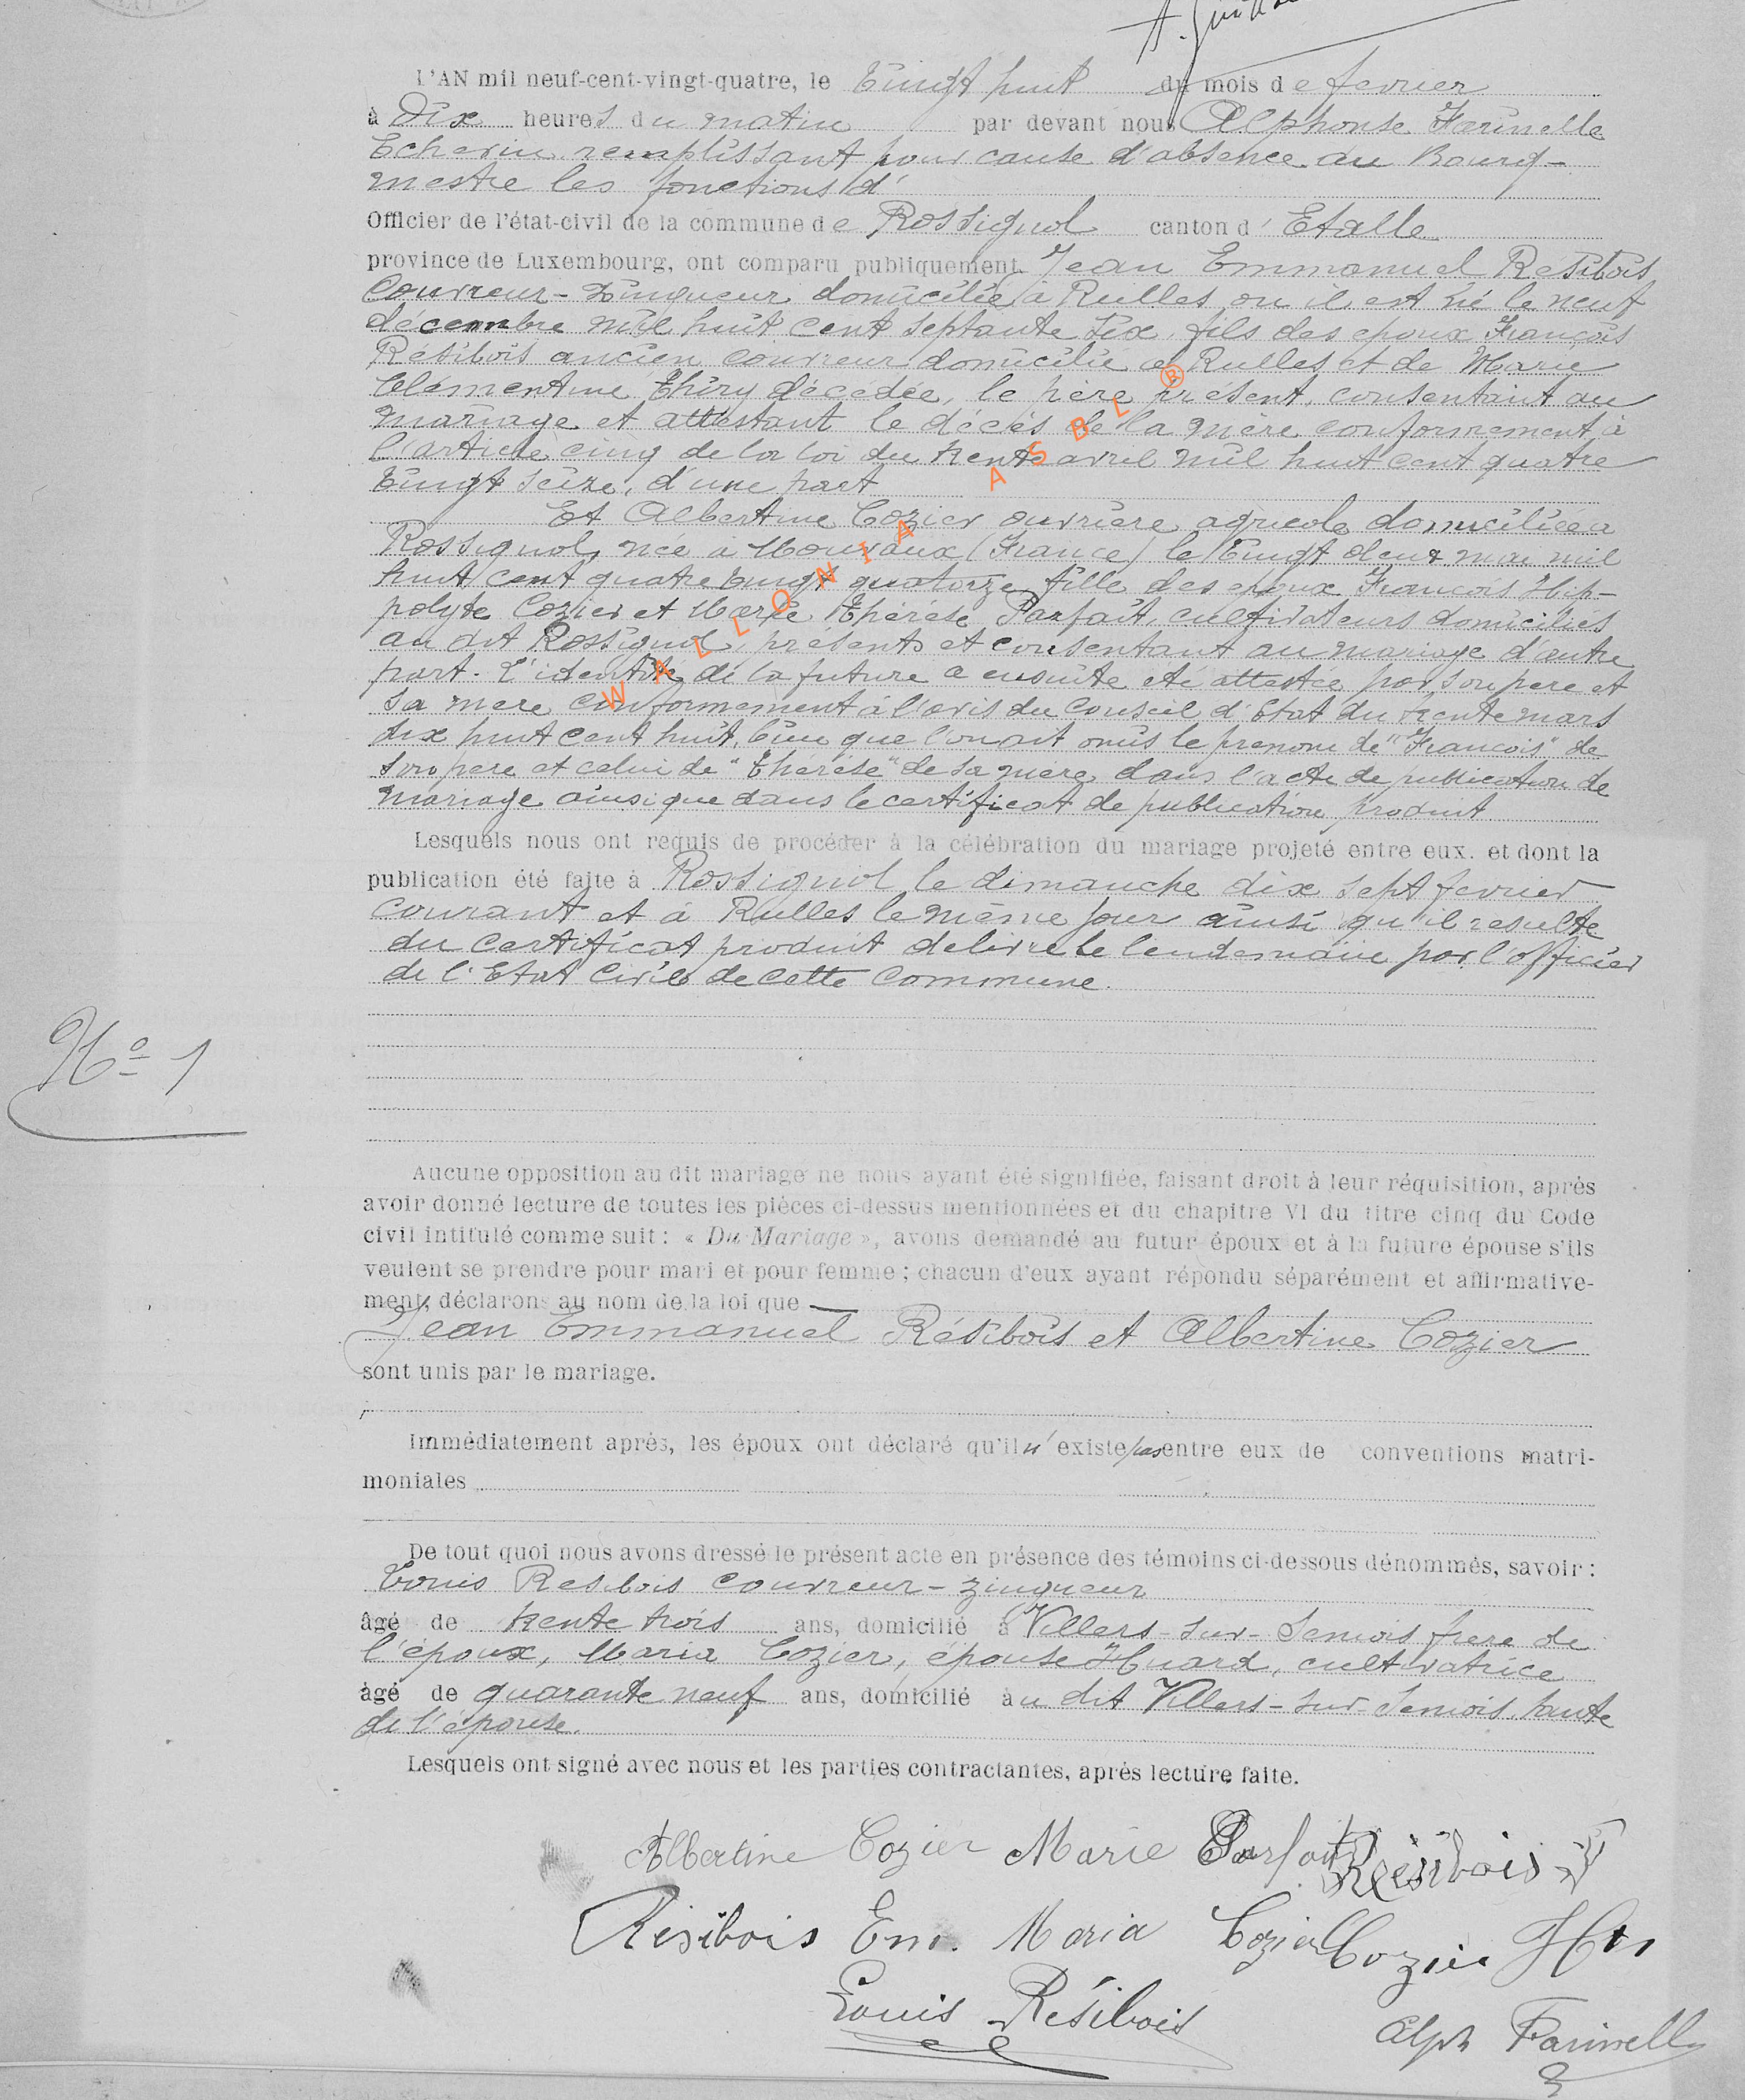 L'AN mil neuf-cent-vingt-quatre, le Vingt huit du mois de fevrier
à Dix heures du matin par devant nous Alphonse Farinelle
Echevin remplissant pour cause d'absence du Bourg-
mestre les fonctions d'
Officier de l'état-civil de la commune de Rossignol canton d'Etalle
province de Luxembourg, ont comparu publiquement Jean Emmanuel Résibois
Couvreur-Zingueur domicilié à Rulles ou il est né le neuf
décembre mil huit cent septante six fils des epoux François
Résibois ancien couvreur domicilié à Rulles et de Marie
Clémentine Thiry décédée, le père présent, consentant au
mariage et attestant le décès de la mère conformement à
l'article cinq de la loi du trente avril mil huit cent quatre
Vingt seize, d'une part
Et Albertine Cozier ouvrière agricole domiciliée à
Rossignol, née à Mouvaux (France) le Vingt deux mai mil
huit cent quatre vingt quatorze fille des epoux François Hip-
polyte Cozier et Marie Thérèse Parfait, cultivateurs domiciliés
au dit Rossignol, presents et consentant au mariage d'autre
part. L'identité de la future a ensuite été attestée par son pere et
sa mere conformement à l'avis du Conseil d'Etat du trente mars
dix huit cent huit, bien que l'on ait omis le prenom de "François" de
son pere et celui de "Thérèse" de sa mère, dans l'acte de publication de
mariage ainsi que dans le certificat de publication produit
Lesquels nous ont requis de procéder à la célébration du mariage projeté entre eux. et dont la
publication été faite à Rossignol le dimanche dix sept fevrier
courant et à Rulles le même jour ainsi qu'il resulte
du certificat produit delivré le lendemain par l'officier
de l'Etat Civil de cette Commune.
No 1
Aucune opposition au dit mariage ne nous ayant été signifiée, faisant droit à leur réquisition, après
avoir donné lecture de toutes les pièces ci-dessus mentionnées et du chapitre VI du titre cinq du Code
civil intitulé comme suit : « Du Mariage », avons demandé au futur époux et à la future épouse s'ils
veulent se prendre pour mari et pour femme ; chacun d'eux ayant répondu séparément et affirmative-
ment, déclarons au nom de la loi que
Jean Emmanuel Résibois et Albertine Cozier
sont unis par le mariage.
Immédiatement après, les époux ont déclaré qu'il n'existe pas entre eux de conventions matri-
moniales
De tout quoi nous avons dressé le présent acte en présence des témoins ci-dessous dénommés, savoir :
Louis Resibois couvreur-zingueur
âgé de trente trois ans, domicilié à Villers-sur-Semois frere de
l'époux, Maria Cozier, épouse Huard, cultivatrice
âgé de quarante neuf ans, domicilié au dit Villers-sur-Semois, tante
de l'épouse.
Lesquels ont signé avec nous et les parties contractantes, après lecture faite.
Albertine Cozier Marie Parfait Resibois F
Résibois Em. Maria Cozier Cozier
Louis Résibois
Alph Farinelle
WALLONIA ASBL ®